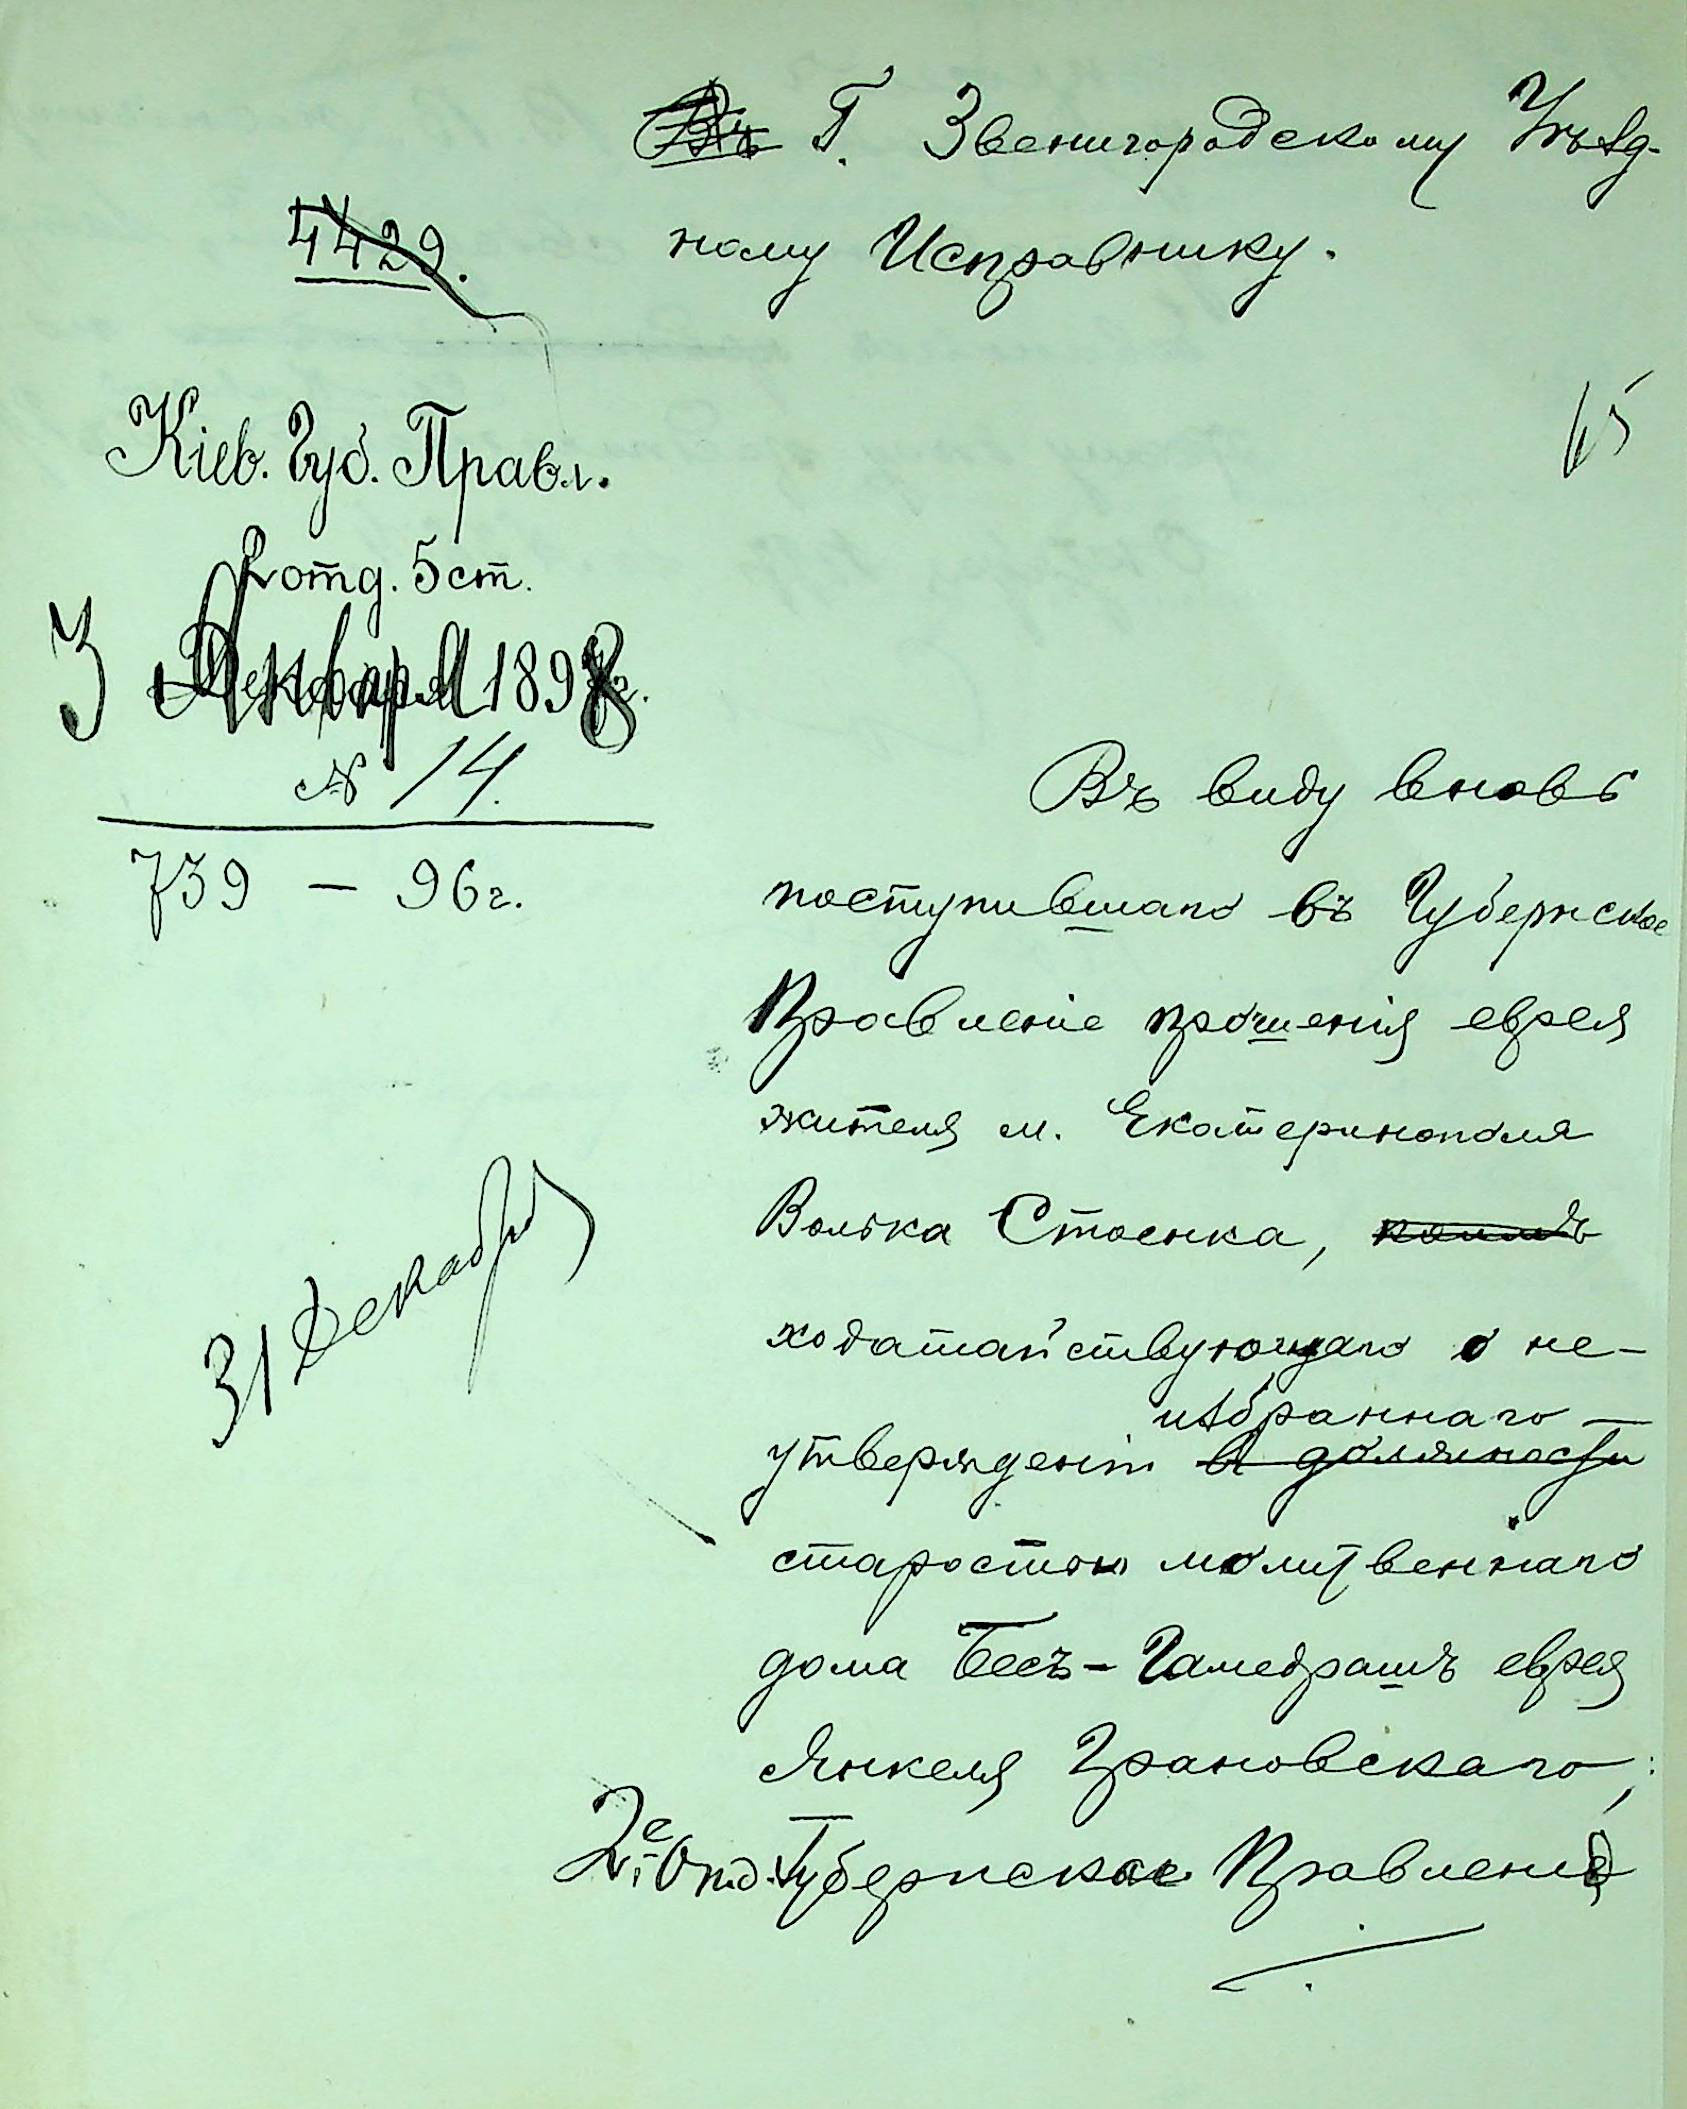 Г. Звенигородскому Уѣзд-
ному Исправнику.
4429.
65
Кіев. Губ. Правл.
2 отд. 5 ст.
3 Января 1898 г.
№ 14.
739 – 96 г.
Въ виду вновь
поступившаго въ Губернское
Правленіе прошенія еврея
жителя м. Екатеринополя
Волька Стаенка,
ходатайствующаго о не-
избраннаго
утвержденіи в должности
старостою молитвеннаго
дома Бесъ-Гамедрашъ еврея
Янкеля Грановскаго,
2е Отд. Губернскае Правленія
31 Декабря